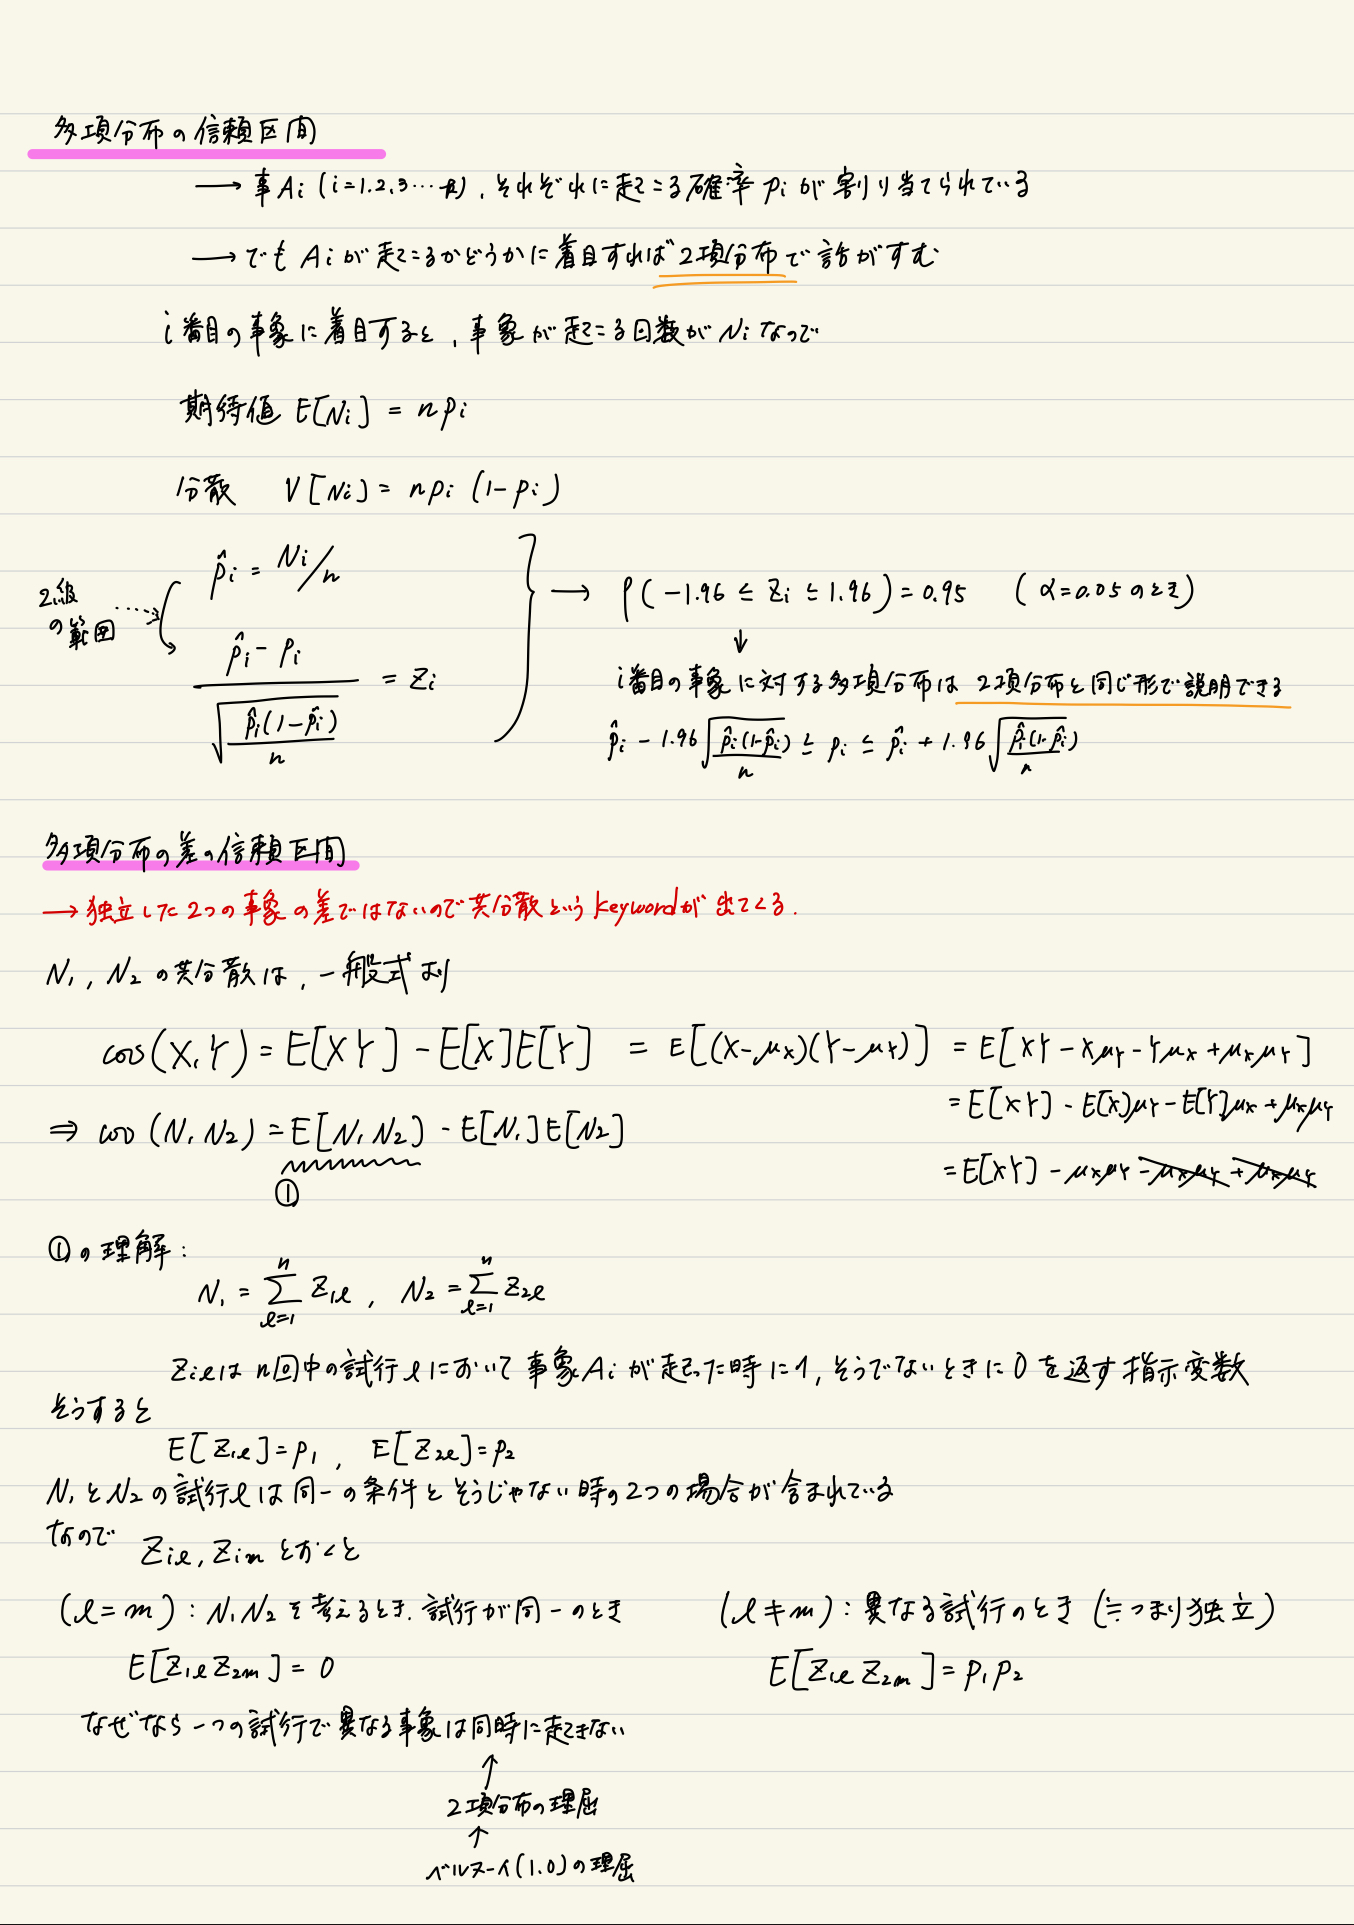 多項分布の信頼区間
→ 事Ai (i=1.2.3…k), それぞれに起こる確率 pi が割り当てられている
→ でも Ai が起こるかどうかに着目すれば 2項分布で話がすむ
i番目の事象に着目すると, 事象が起こる回数が Ni なので
期待値 E[Ni] = npi
分散 V[Ni] = npi (1-pi)
p̂i = Ni/n
2級の範囲
(p̂i - pi) / √(p̂i(1-p̂i)/n) = Zi
→ P(-1.96 ≦ Zi ≦ 1.96) = 0.95 (α=0.05のとき)
↓
i番目の事象に対する多項分布は 2項分布と同じ形で説明できる
p̂i - 1.96√(p̂i(1-p̂i)/n) ≦ pi ≦ p̂i + 1.96√(p̂i(1-p̂i)/n)
多項分布の差の信頼区間
→ 独立した2つの事象の差ではないので共分散というkeywordが出てくる.
N1, N2 の共分散は, 一般式より
cov(X,Y) = E[XY] - E[X]E[Y] = E[(X-μx)(Y-μY)] = E[XY - XμY - Yμx + μxμY]
= E[XY] - E[X]μY - E[Y]μx + μxμY
⇒ cov(N1 N2) = E[N1 N2] - E[N1]E[N2]
①
= E[XY] - μxμY - μxμY + μxμY
①の理解:
N1 = Σ(l=1→n) Z1l , N2 = Σ(l=1→n) Z2l
Zilは n回中の試行lにおいて 事象Aiが起った時に1, そうでないときに0を返す指示変数
そうすると
E[Z1l] = p1 , E[Z2l] = p2
N1とN2の試行lは同一の条件とそうじゃない時の2つの場合が含まれている
なので Zil, Zim とおくと
(l=m): N1N2を考えるとき. 試行が同一のとき
E[Z1l Z2m] = 0
なぜなら一つの試行で異なる事象は同時に起きない
↑
2項分布の理屈
↑
ベルヌーイ(1.0)の理屈
(l≠m): 異なる試行のとき (≒つまり独立)
E[Z1l Z2m] = p1p2